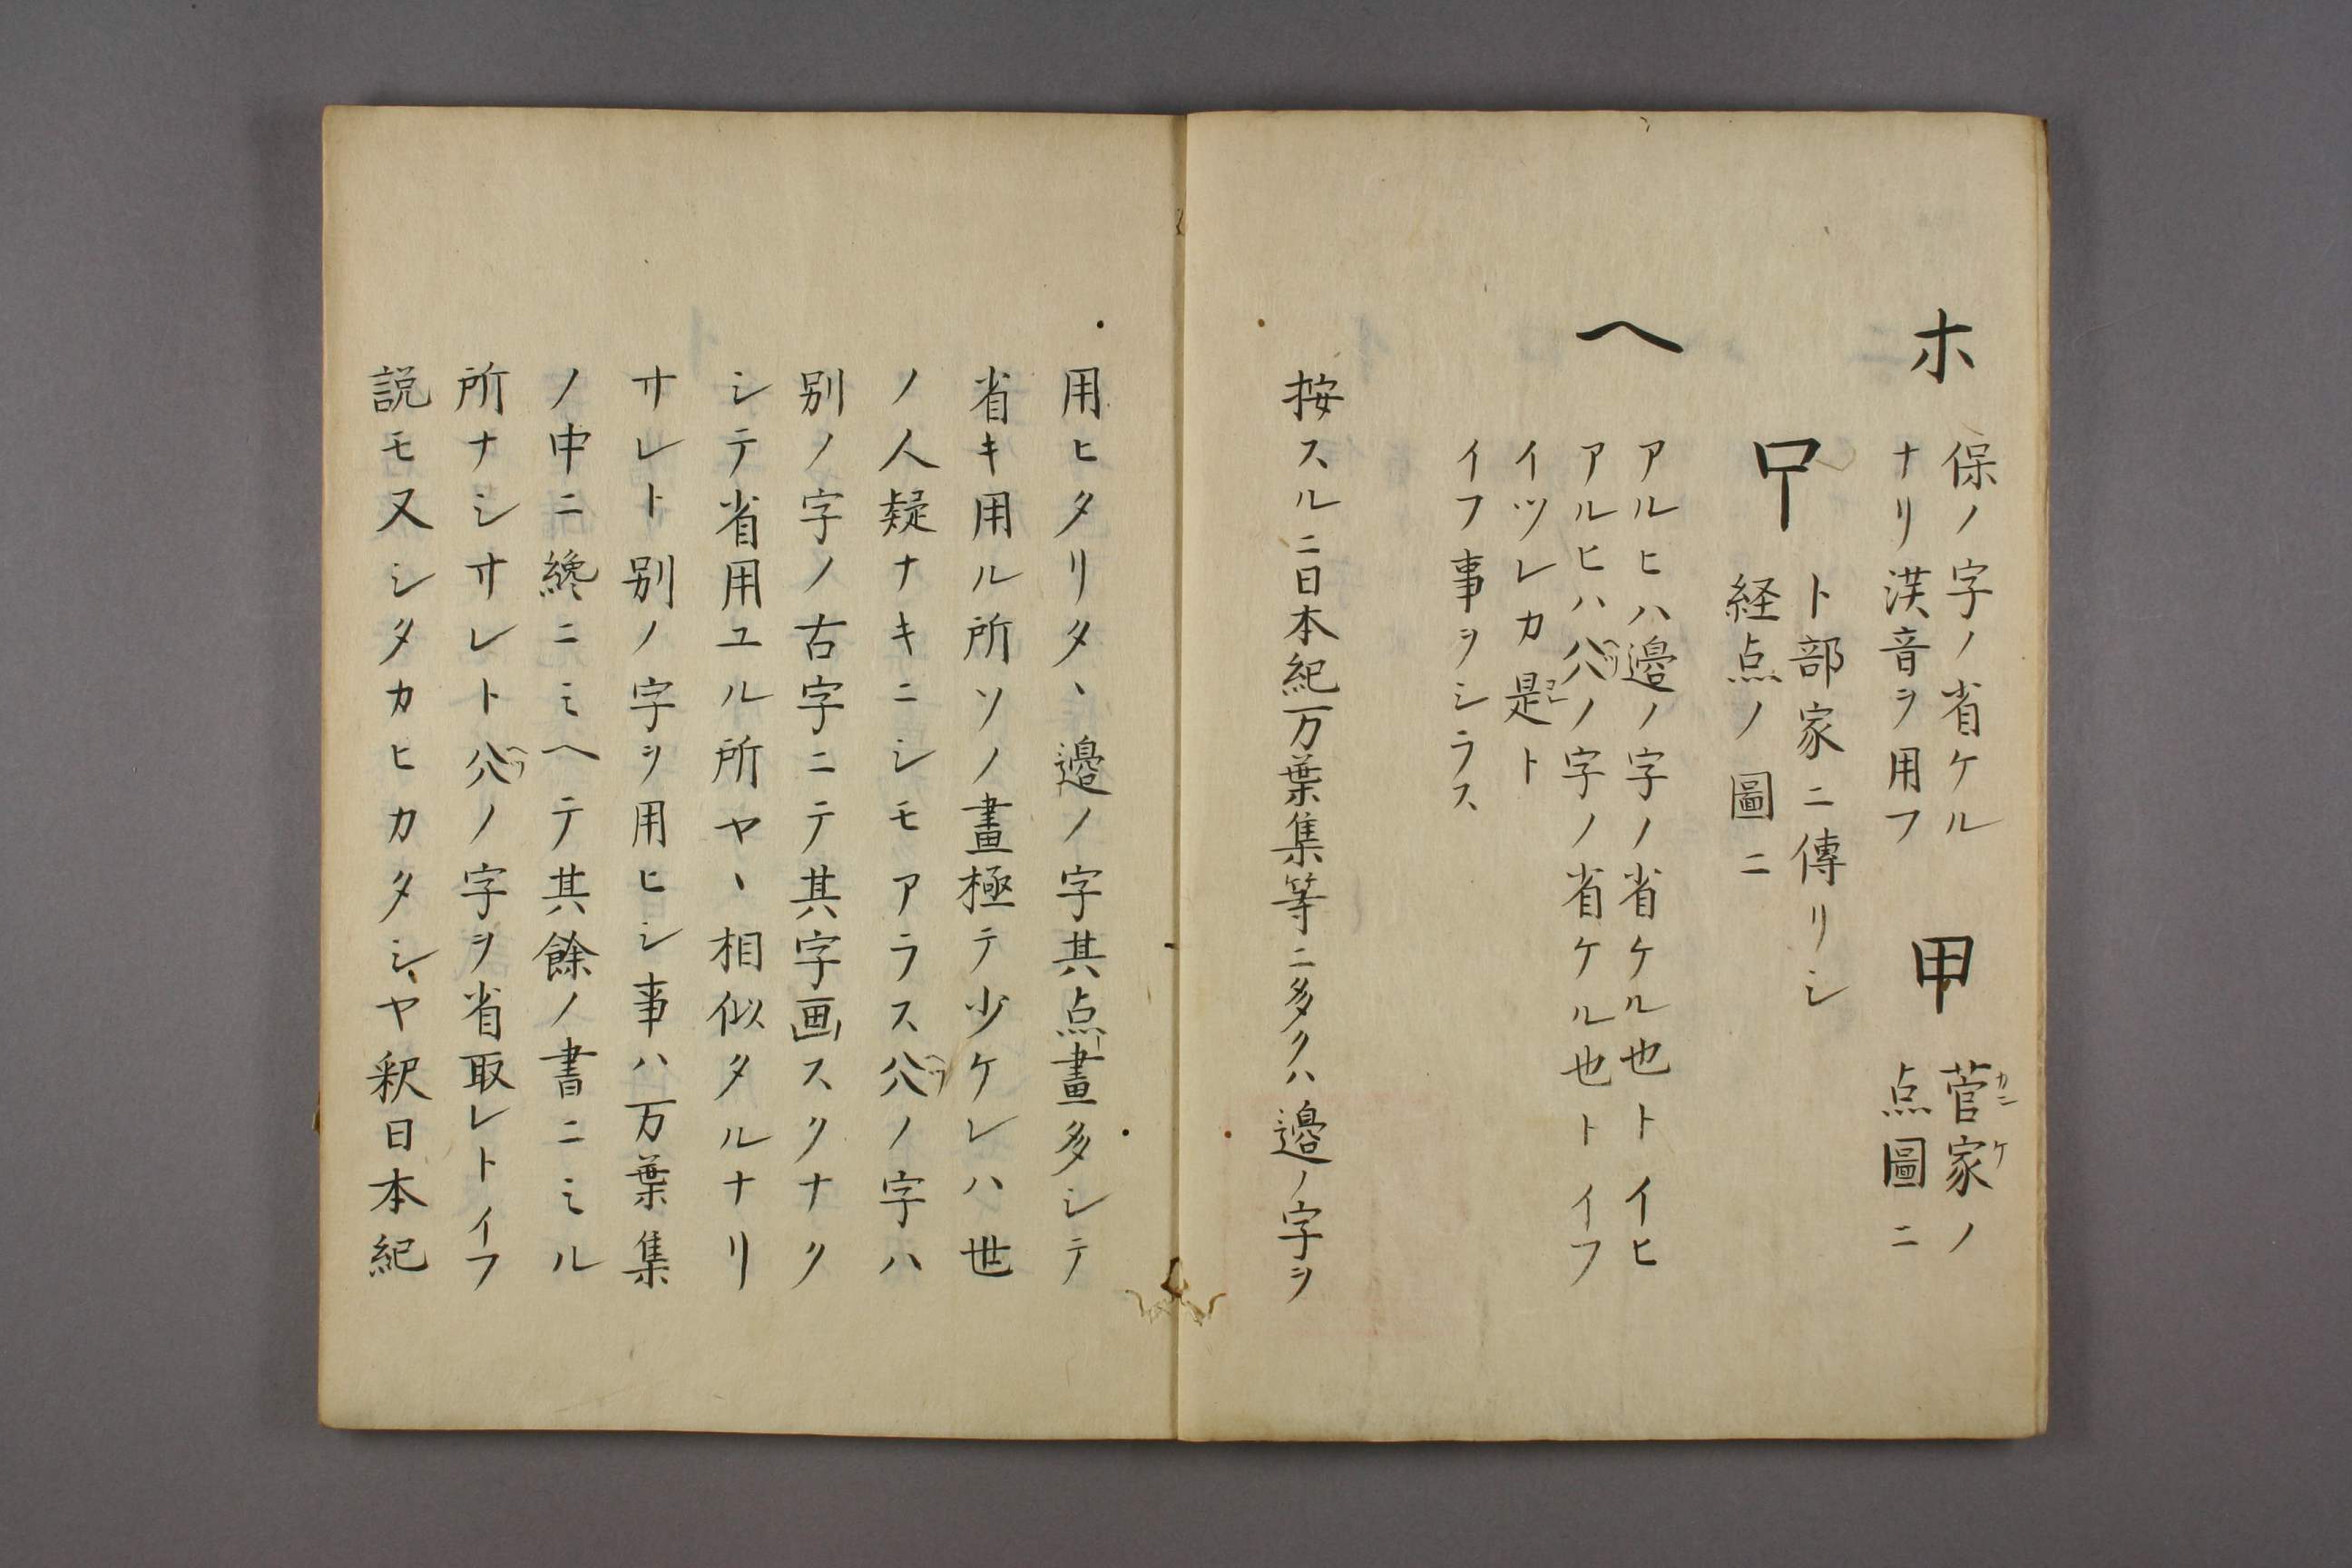 ホ
保ノ字ノ省ケル
ナリ漢音ヲ用フ
甲
菅家ノ
カンケ
点圖ニ
卩
卜部家ニ傳リシ
経点ノ圖ニ
ヘ
アルヒハ邉ノ字ノ省ケル也トイヒ
アルヒハ㕣ノ字ノ省ケル也トイフ
イツレカ是ト
コレ
イフ事ヲシラス
按スルニ日本紀万葉集等ニ多クハ邉ノ字ヲ
用ヒタリタヽ邉ノ字其点畫多シテ
省キ用ル所ソノ畫極テ少ケレハ世
ノ人疑ナキニシモアラス㕣ノ字ハ
別ノ字ノ古字ニテ其字画スクナク
シテ省用ユル所ヤヽ相似タルナリ
サレト別ノ字ヲ用ヒシ事ハ万葉集
ノ中ニ纔ニミヘテ其餘ノ書ニミル
所ナシサレト㕣ノ字ヲ省取レトイフ
説モ又シタカヒカタシヤ釈日本紀